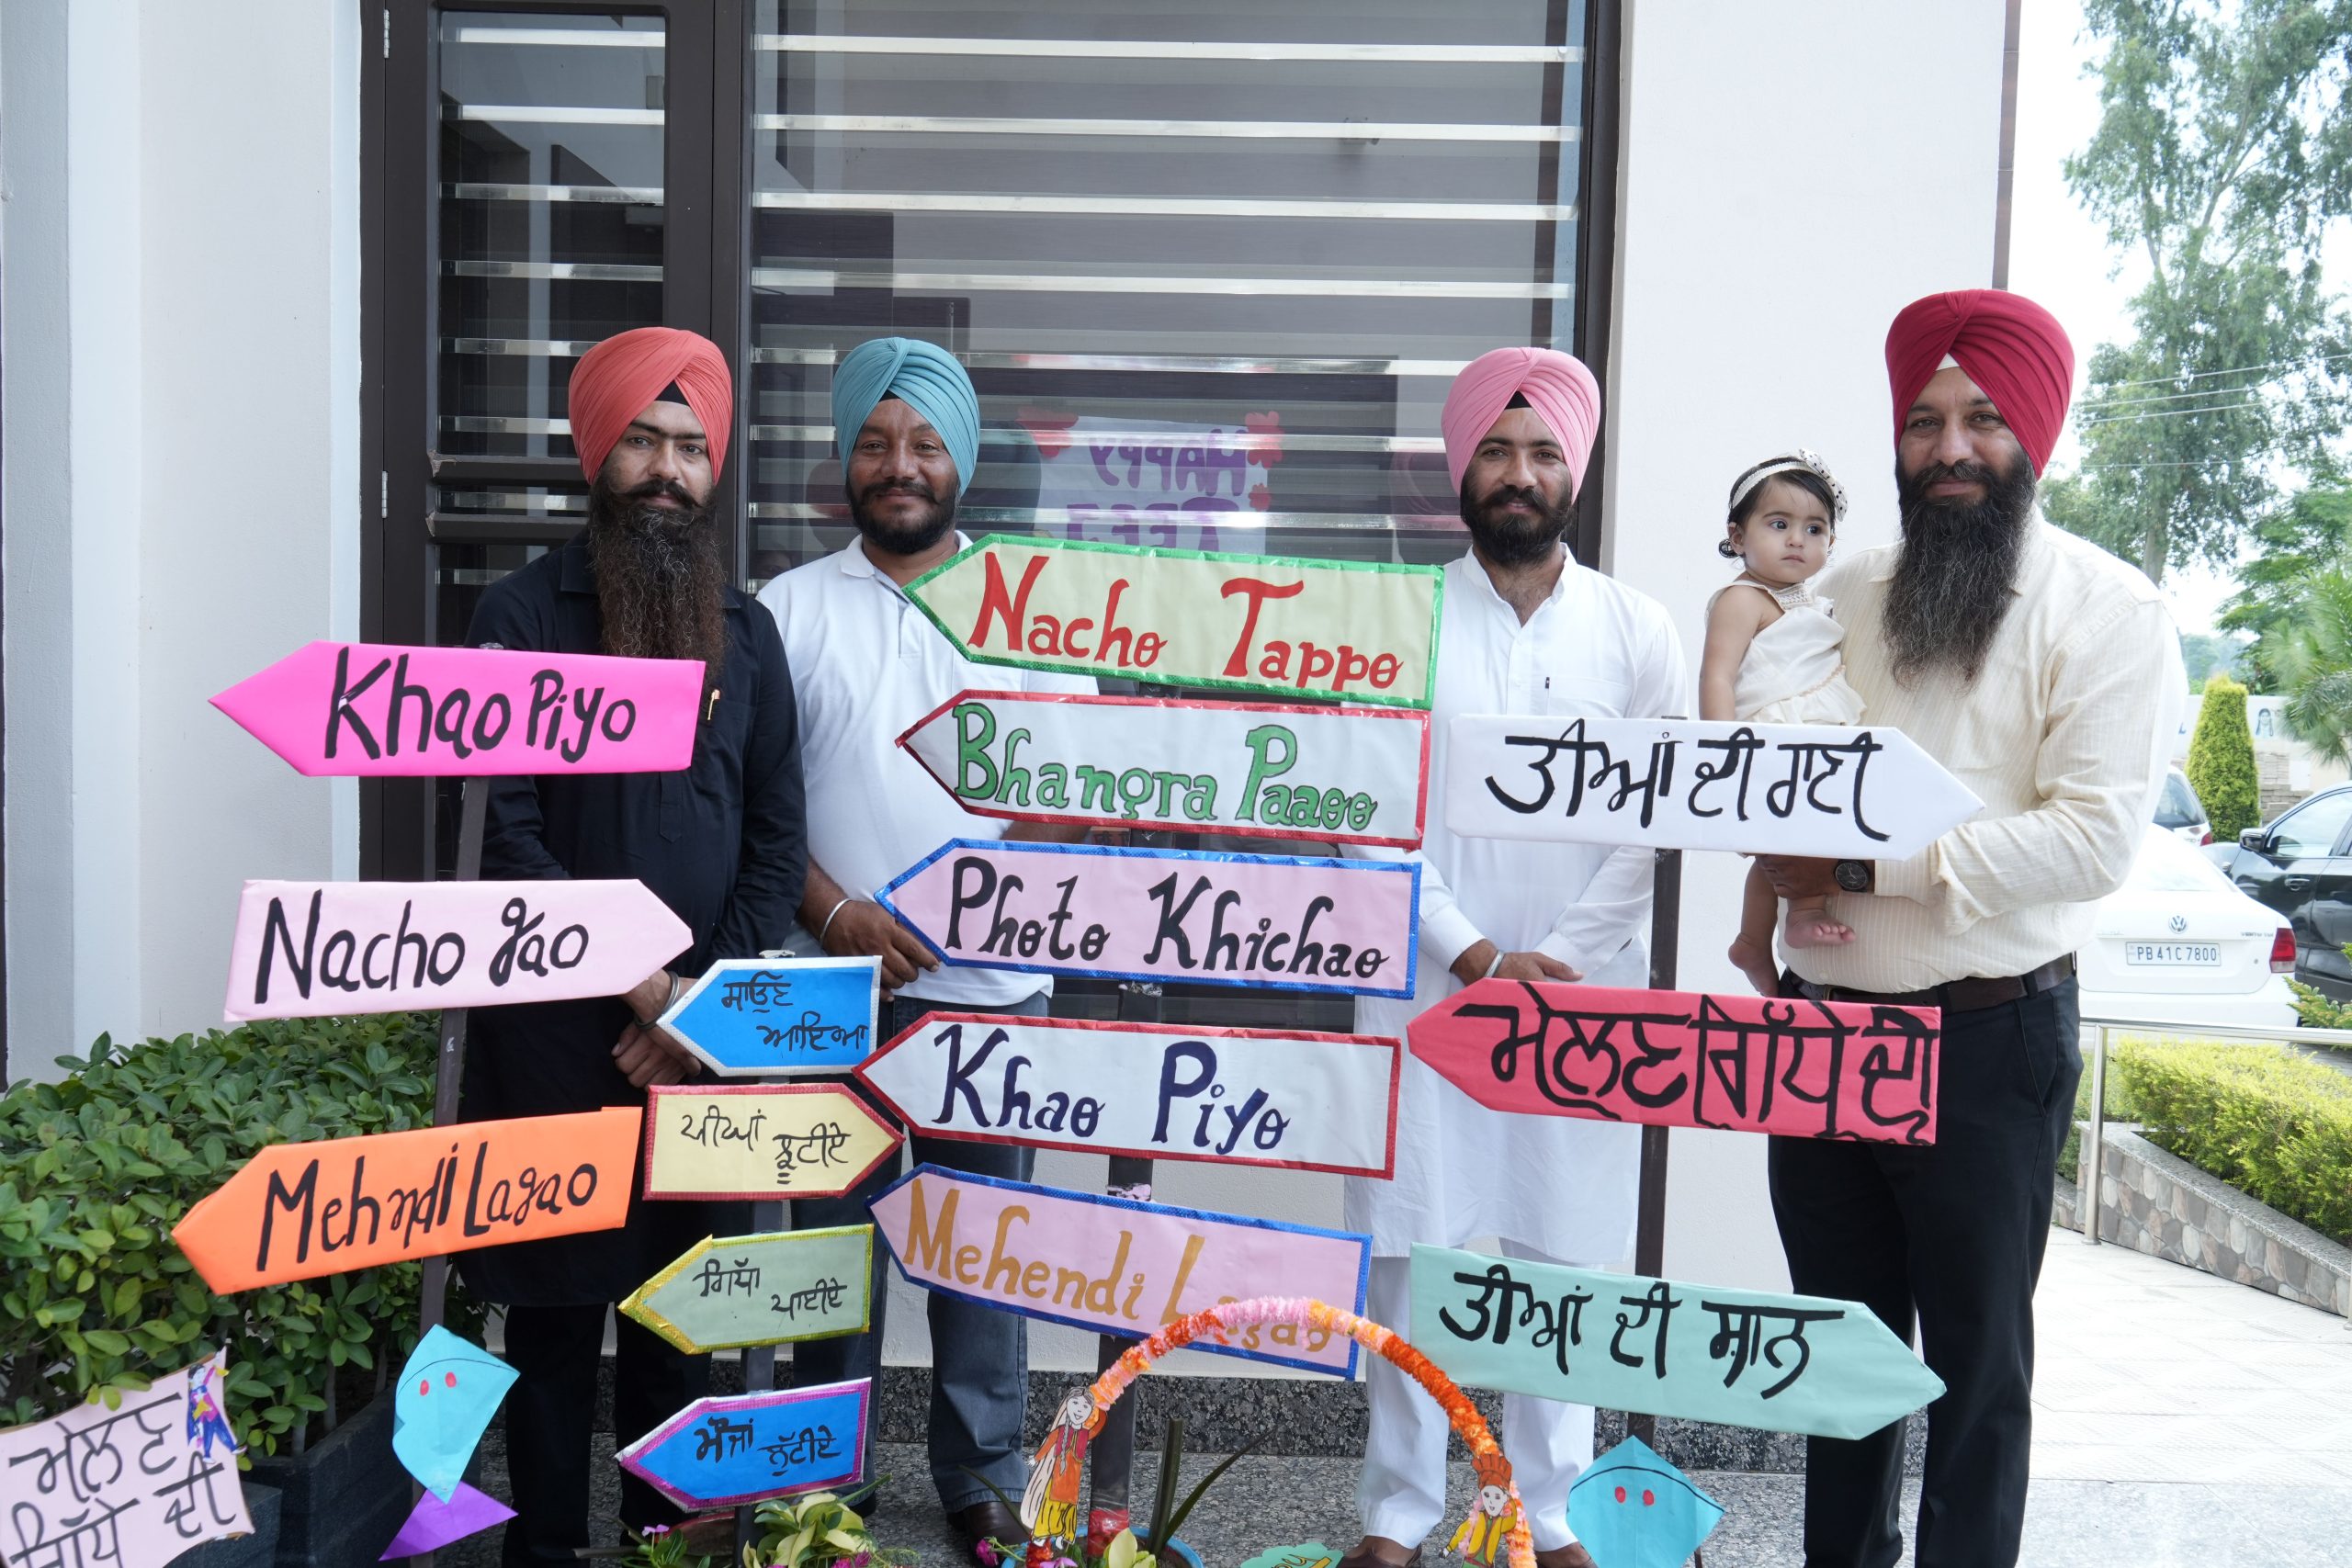 HAPPY
TEEJ
Khao Piyo
Nacho gao
Mehndi Lagao
ਮੇਲਣ
ਗਿੱਧੇ ਦੀ
ਸਾਉਣ
ਆਇਆ
ਪੀਂਘਾਂ ਝੂਟੀਏ
ਗਿੱਧਾ ਪਾਈਏ
ਮੌਜਾਂ ਲੁੱਟੀਏ
Nacho Tappo
Bhangra Paaoo
Photo Khichao
Khao Piyo
Mehendi Lagao
ਤੀਆਂ ਦੀ ਰਾਣੀ
ਮੇਲਣ ਗਿੱਧੇ ਦੀ
ਤੀਆਂ ਦੀ ਸ਼ਾਨ
PB41C7800